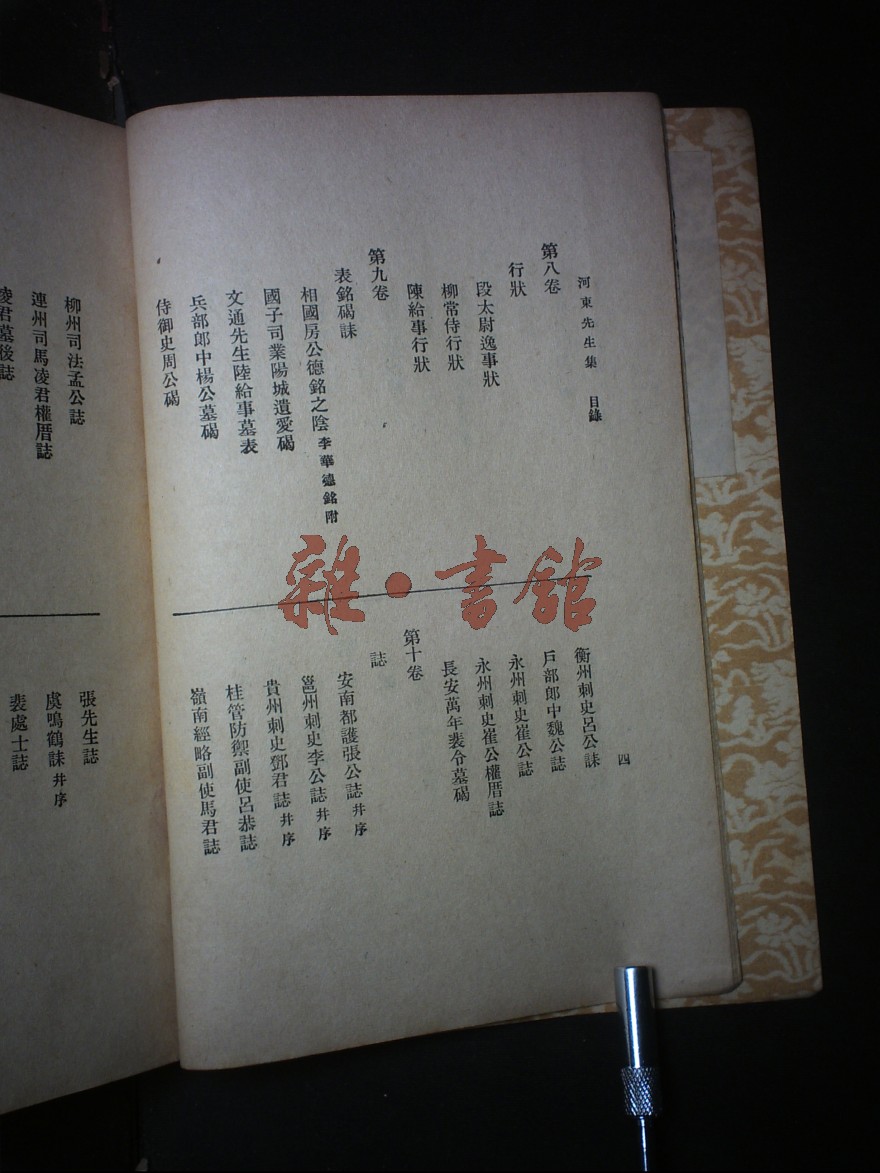 河東先生集 目錄
第八卷
行狀
段太尉逸事狀
柳常侍行狀
陳給事行狀
第九卷
表銘碣誄
相國房公德銘之陰 李華德銘附
國子司業陽城遺愛碣
文通先生陸給事墓表
兵部郎中楊公墓碣
侍御史周公碣
四
衡州刺史呂公誄
戶部郎中魏公誌
永州刺史崔公誌
永州刺史崔公權厝誌
長安萬年裴令墓碣
第十卷
誌
安南都護張公誌 并序
邕州刺史李公誌 并序
貴州刺史鄧君誌 并序
桂管防禦副使呂恭誌
嶺南經略副使馬君誌
柳州司法孟公誌
連州司馬凌君權厝誌
凌君墓後誌
張先生誌
虞鳴鶴誄 并序
裴處士誌
雜·書館